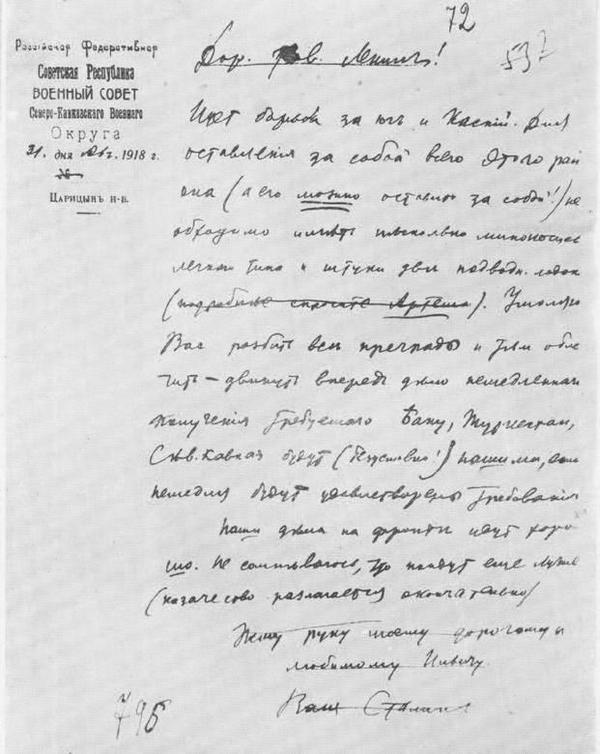 72
532
Российская Федеративная
Советская Республика
ВОЕННЫЙ СОВЕТ
Северо-Кавказского Военного
Округа
31. дня Авг. 1918 г.
№
Царицынъ н-в.
Дор. тов. Ленинъ!
Идет борьба за югъ и Каспий. Для
оставления за собой всего этого рай
она (а его можно оставить за собой!) не
обходимо иметь несколько миноносцев
легкого типа и штуки две подводн. лодок
(подробнее спросите Артема). Умоляю
Вас разбить все преграды и тем обле
гчить — двинуть впередъ дело немедленнаго
получения требуемого. Баку, Туркестан,
Сѣв. Кавказ будут (безусловно!) нашими, если
немедля будут удовлетворены требования
Наши дѣла на фронте идут хоро
шо. Не сомневаюсь, что пойдут еще лучше
(казачество разлагается окончательно)
Жму руку моему дорогому и
любимому Ильичу.
Ваш Сталинъ
796